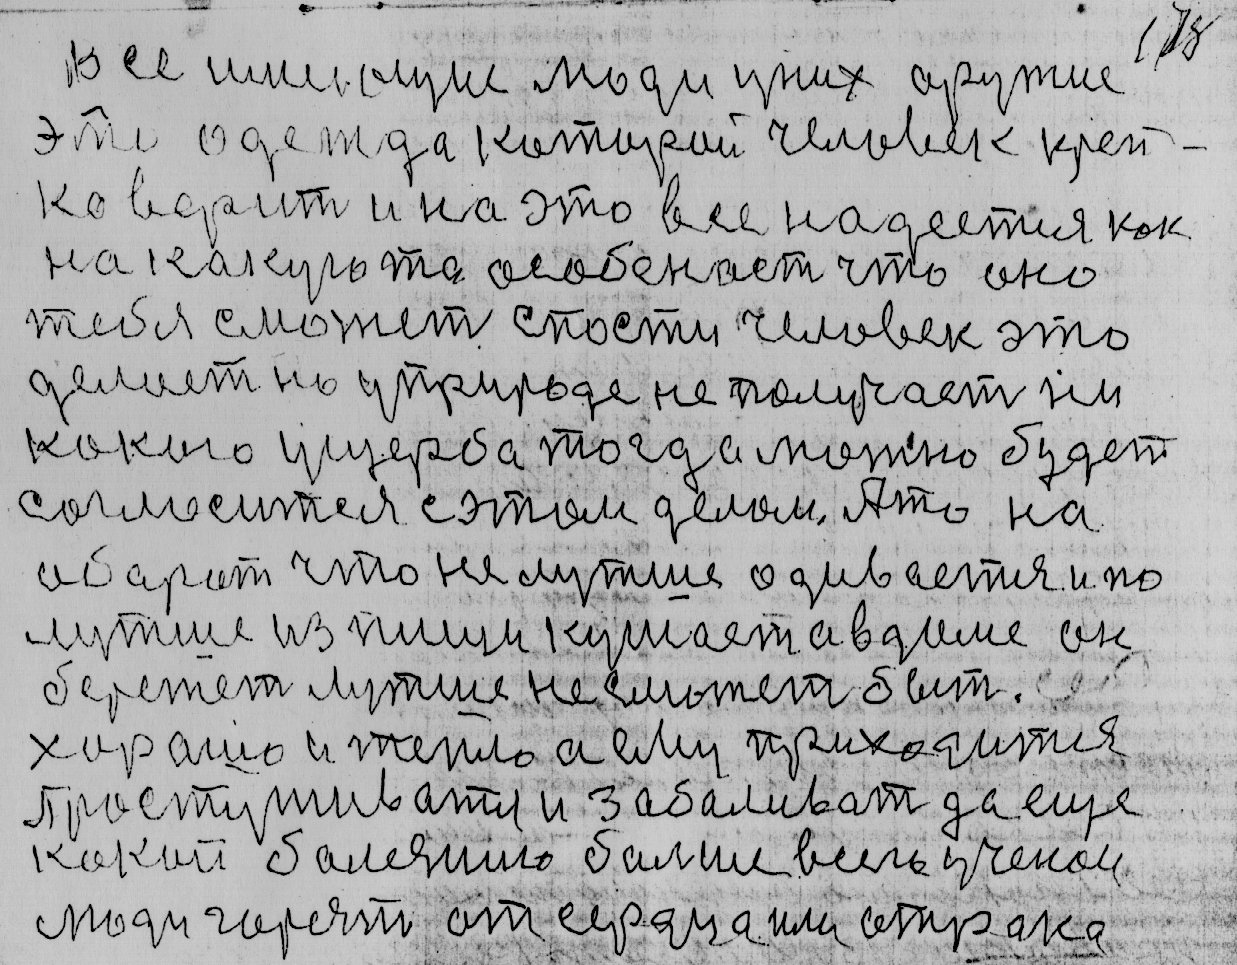 178
Все имеющие люди уних оружие
это одежда которой человек креп-
ко верит и на это все надеется как
на какуюта особеност что оно
тебя сможет спости человек это
делает но уприроде не получает ни
кокого ущерба тогда можно будет
согласится сэтом делом. Ато на
обарот что не лутше одивается и по
лутше из пищи кушает авдоме он
бережет лутше несможет быт.
хорашо и тепло а ему приходится
простуживати и забаливат да еще
кокой болезнию балше всего ученои
люди горят от сердца или отрака